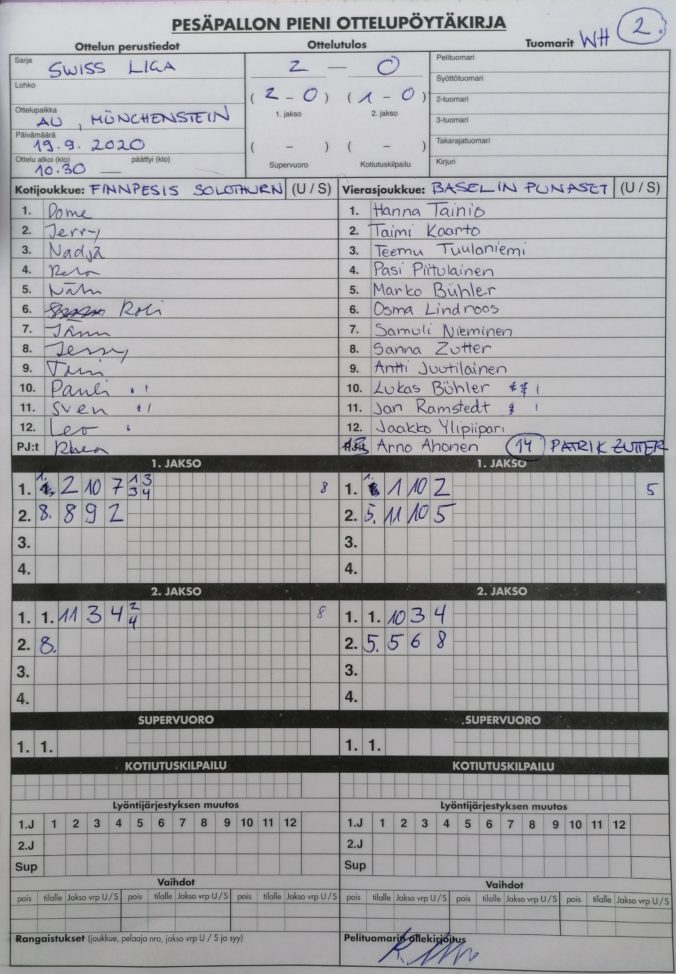 PESÄPALLON PIENI OTTELUPÖYTÄKIRJA
2.
Ottelun perustiedot
Ottelutulos
Tuomarit WH
Sarja SWISS LIGA
Lohko
Ottelupaikka AU, MÜNCHENSTEIN
Päivämäärä 19.9.2020
Ottelu alkoi (klo) päättyi (klo)
10.30 —
2 — 0
(2 - 0) (1 - 0)
1. jakso 2. jakso
( - ) ( - )
Supervuoro Kotiutuskilpailu
Pelituomari
Syöttötuomari
2-tuomari
3-tuomari
Takarajatuomari
Kirjuri
Kotijoukkue: FINNPESIS SOLOTHURN (U / S)
1. Dome
2. Jerry
3. Nadja
4.
5.
6. Roli
7.
8. Jenny
9.
10. Pauli
11. Sven
12. Leo
PJ:t Rhea
Vierasjoukkue: BASELIN PUNASET (U / S)
1. Hanna Tainio
2. Taimi Kaarto
3. Teemu Tuulaniemi
4. Pasi Piitulainen
5. Marko Bühler
6. Osma Lindroos
7. Samuli Nieminen
8. Sanna Zutter
9. Antti Juutilainen
10. Lukas Bühler
11. Jan Ramstedt
12. Jaakko Ylipiipari
Arno Ahonen 14 PATRIK ZUTTER
1. JAKSO
1. 1. 2 10 7 1 3 3 4 8
2. 8. 8 9 2
3.
4.
1. JAKSO
1. 1. 1 10 2 5
2. 5. 11 10 5
3.
4.
2. JAKSO
1. 1. 11 3 4 2 4 8
2. 8.
3.
4.
2. JAKSO
1. 1. 10 3 4
2. 5. 5 6 8
3.
4.
SUPERVUORO
1. 1.
SUPERVUORO
1. 1.
KOTIUTUSKILPAILU
KOTIUTUSKILPAILU
Lyöntijärjestyksen muutos
1.J 1 2 3 4 5 6 7 8 9 10 11 12
2.J
Sup
Lyöntijärjestyksen muutos
1.J 1 2 3 4 5 6 7 8 9 10 11 12
2.J
Sup
Vaihdot
pois tilalle Jakso vrp U / S pois tilalle Jakso vrp U / S pois tilalle Jakso vrp U / S
Vaihdot
pois tilalle Jakso vrp U / S pois tilalle Jakso vrp U / S pois tilalle Jakso vrp U / S
Rangaistukset (joukkue, pelaaja nro, jakso vrp U / S ja syy)
Pelituomarin allekirjoitus